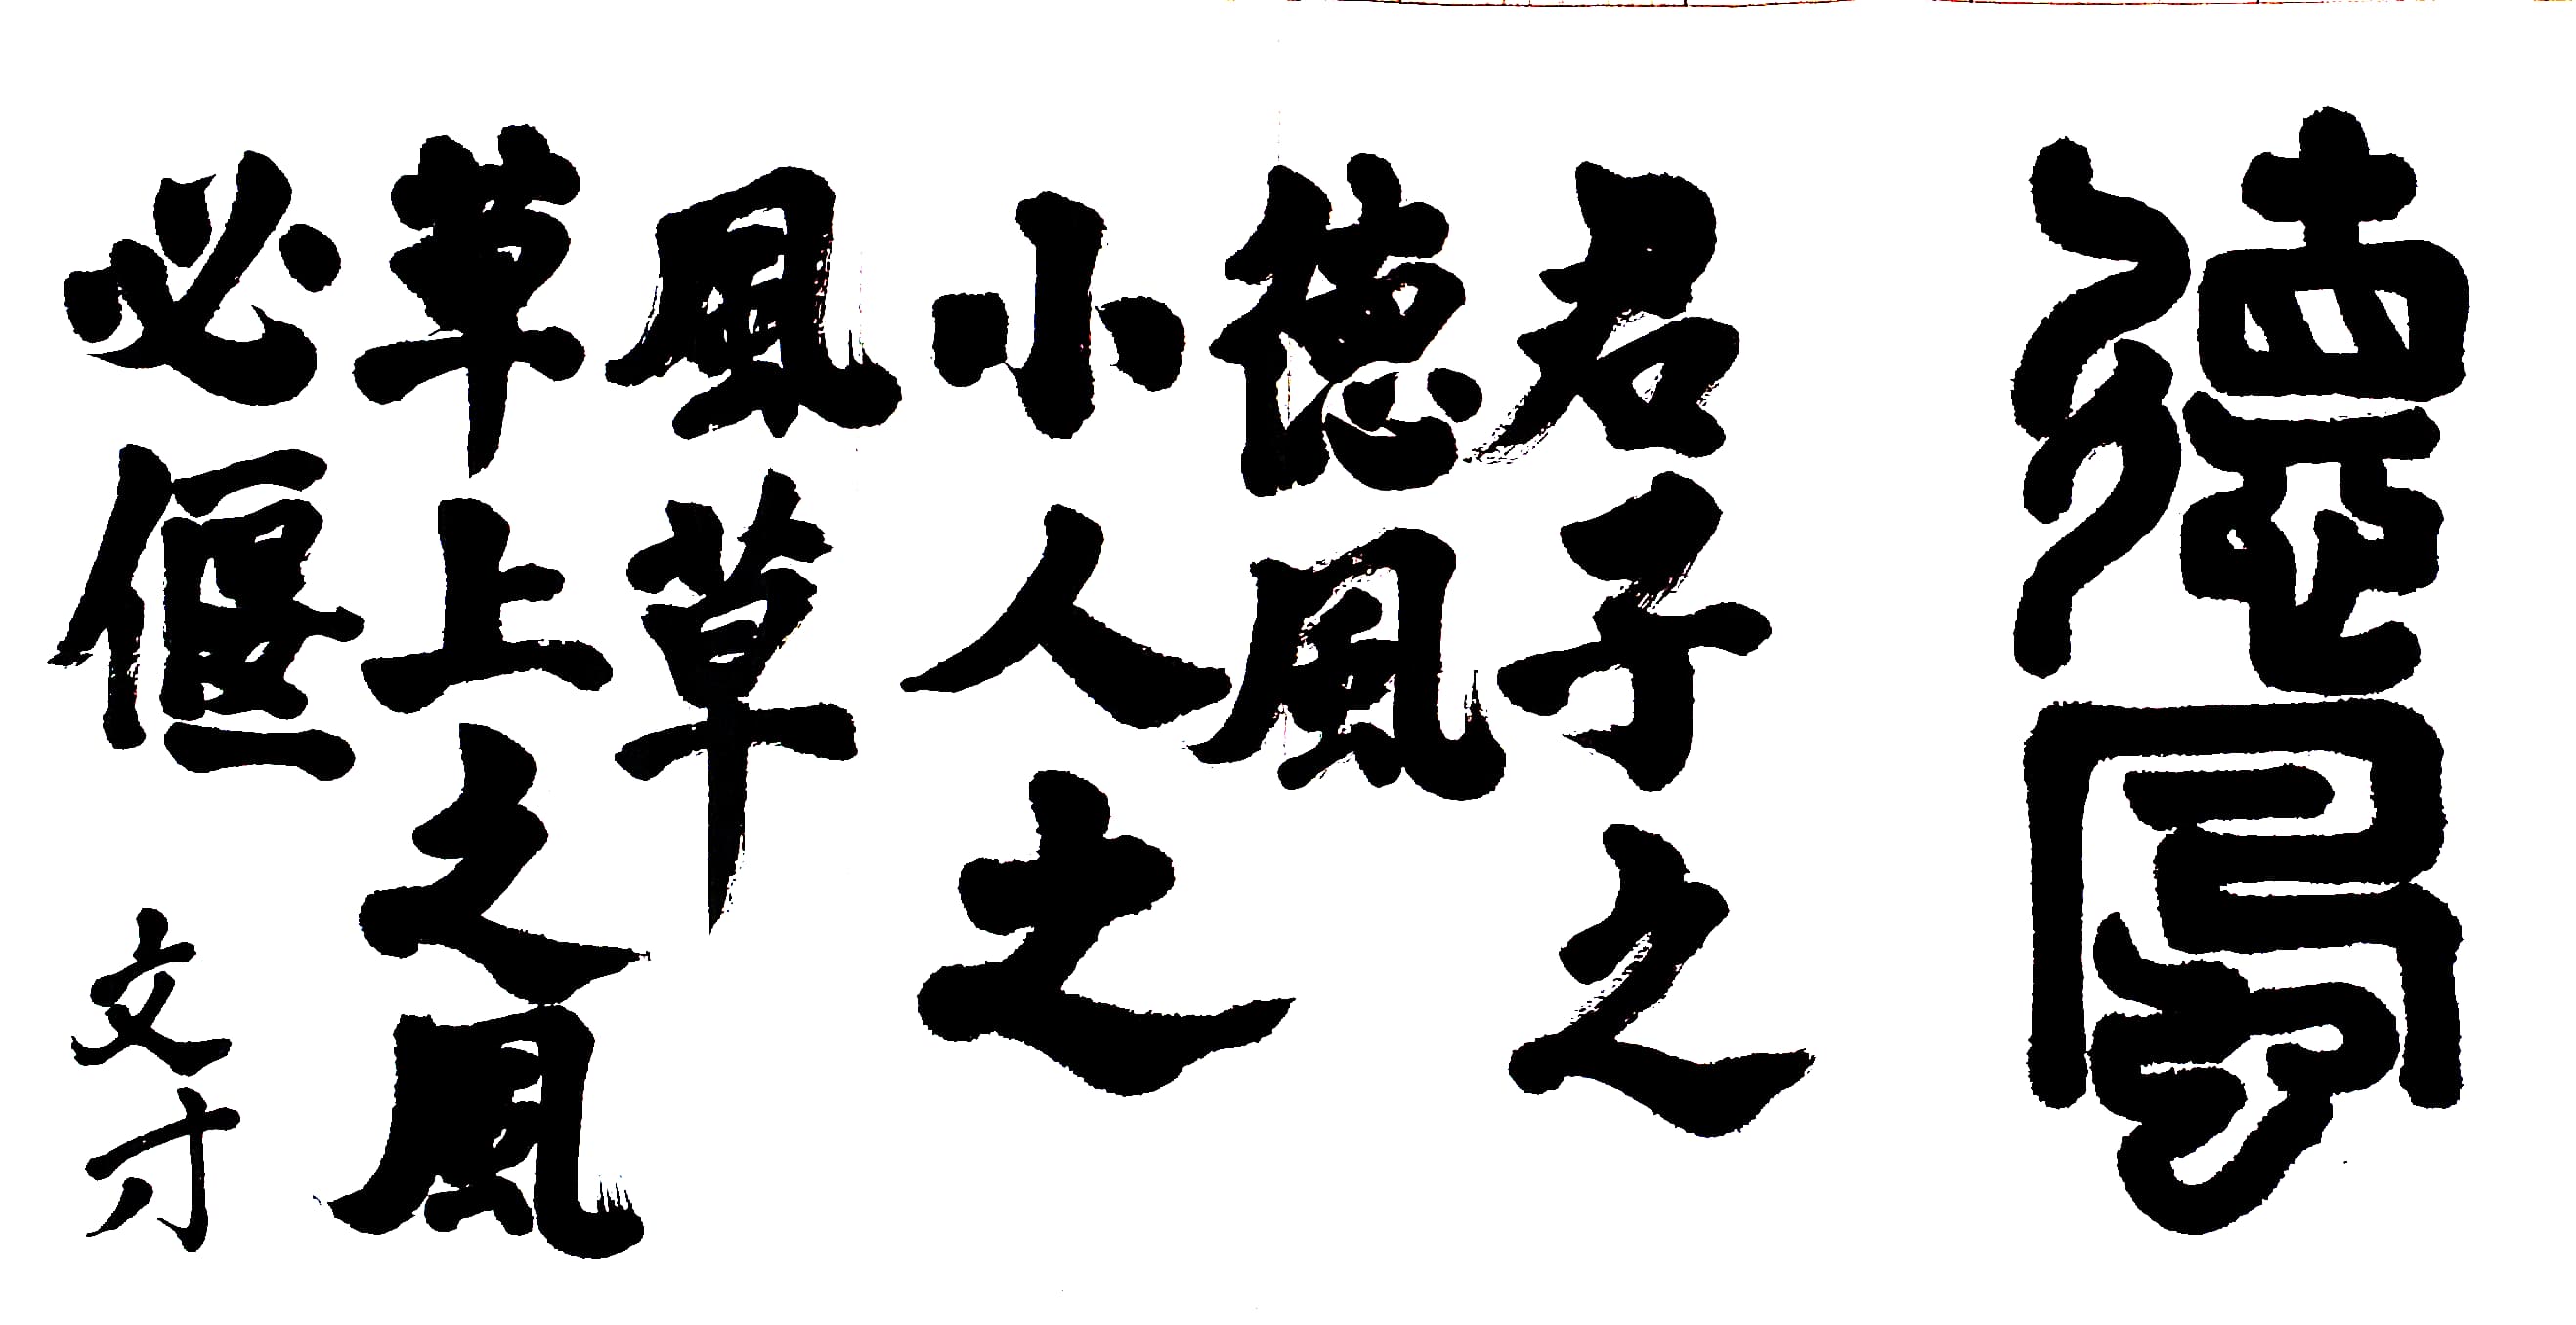 德風
君子之
德風
小人之
風草
草上之風
必偃
文才